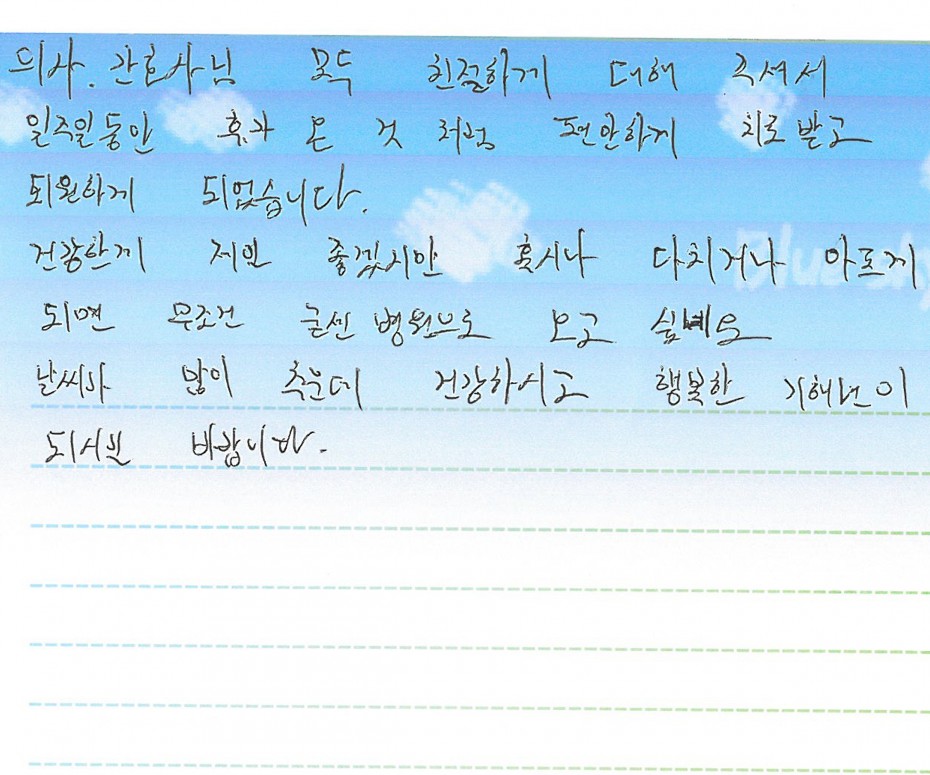 의사.간호사님 모두 친절하게 대해 주셔서
일주일동안 휴가 온 것 처럼 편안하게 치료 받고
퇴원하게 되었습니다.
건강한게 제일 좋겠지만 혹시나 다치거나 아프게
되면 무조건 굿센 병원으로 오고 싶네요
날씨가 많이 추운데 건강하시고 행복한 기해년이
되시길 바랍니다.
Blue sky